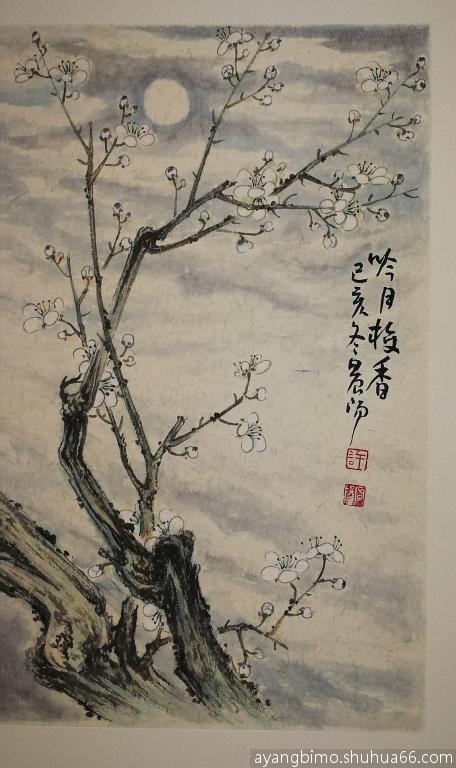 吟月梅香
己亥冬晨阳
許
ayangbimo.shuhua66.com